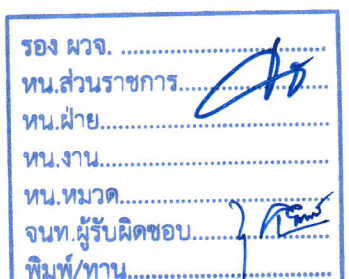 รอง ผวจ. ........................
หน.ส่วนราชการ........................
หน.ฝ่าย........................
หน.งาน........................
หน.หมวด........................
จนท.ผู้รับผิดชอบ........................
พิมพ์/ทาน........................